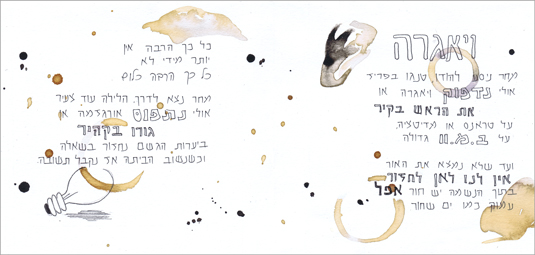 ויאגרה
מחר ניסע להודו טנגו בפריז
אולי נדפוק ויאגרה או
את הראש בקיר
על טראנס או מדיטציה
על ב.מ.וו גדולה
ועד שלא נמצא את האור
אין לנו לאן לחזור
בתוך הנשמה יש חור אפל
עמוק כמו ים שחור
כל כך הרבה אין
יותר מידי לא
כל כך הרבה כלום
מחר נצא לדרך הלילה עוד צעיר
אולי נתפוס אורגזמה או
גורו בקהיר
ביערות הגשם נחזור בשאלה
וכשנשוב הביתה אז נקבל תשובה